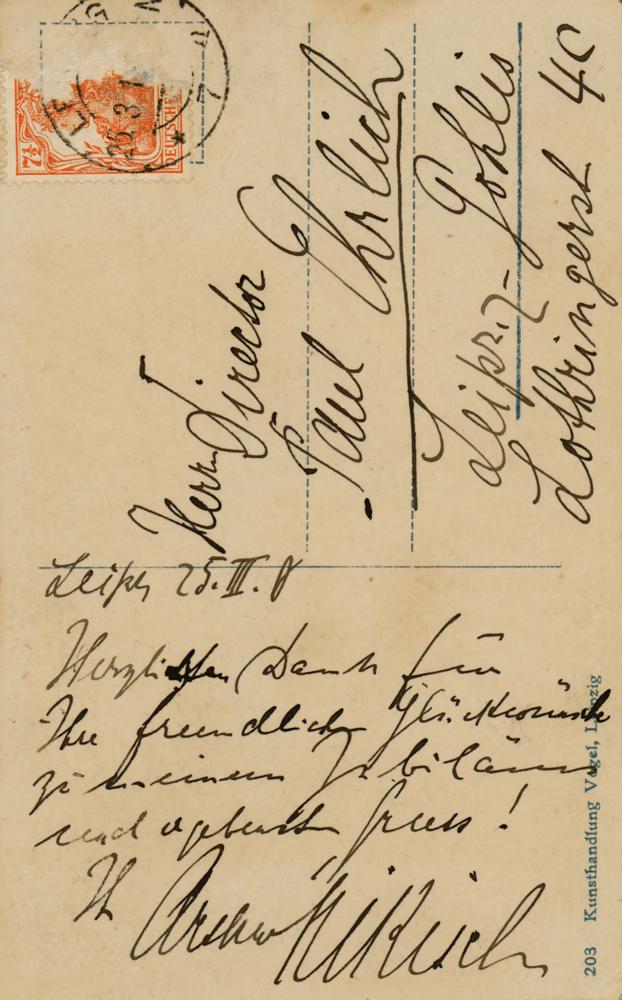 Herrn Director
Paul Ehrlich
Leipzig-Gohlis
Lothringerst 4c
Leipzg 25. III. 8
Herzlichen Dank für
Ihre freundlichen Glückwünsche
zu meinem Jubiläum
und ergebensten Gruss!
Ihr Arthur Nikisch
203 Kunsthandlung Vogel, Leipzig
7½
DEUTSCHES
25.3.1
7